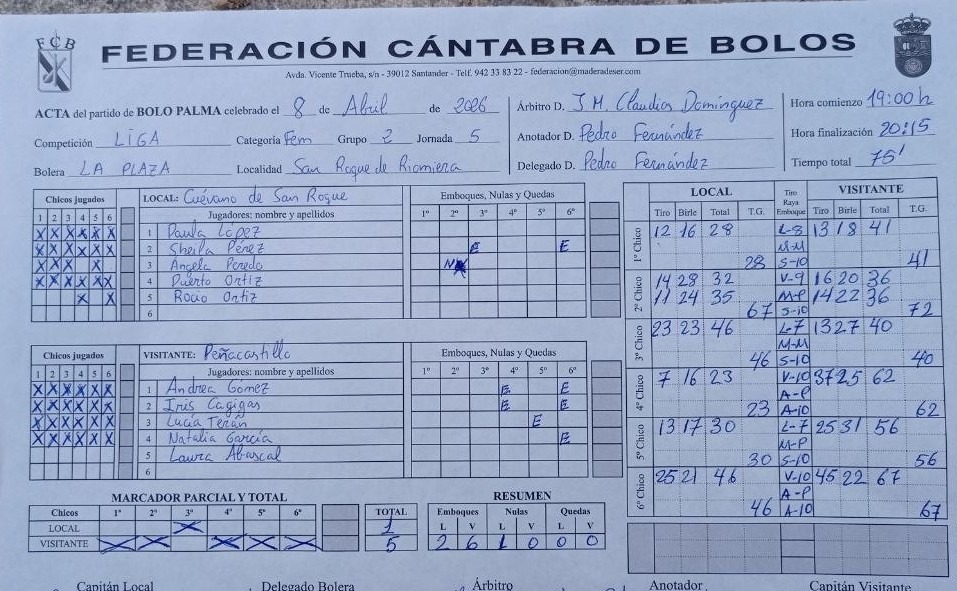 FCB
FEDERACIÓN CÁNTABRA DE BOLOS
Avda. Vicente Trueba, s/n - 39012 Santander - Telf. 942 33 83 22 - federacion@maderadeser.com
ACTA del partido de BOLO PALMA celebrado el 8 de Abril de 2026
Competición LIGA Categoría Fem Grupo 2 Jornada 5
Bolera LA PLAZA Localidad San Roque de Riomiera
Árbitro D. J M. Claudios Domínguez
Anotador D. Pedro Fernández
Delegado D. Pedro Fernández
Hora comienzo 19:00 h
Hora finalización 20:15
Tiempo total 75'
Chicos jugados LOCAL: Cuévano de San Roque Emboques, Nulas y Quedas
1 2 3 4 5 6 Jugadores: nombre y apellidos 1º 2º 3º 4º 5º 6º
X X X X X X 1 Paula López
X X X X X X 2 Sheila Pérez E E
X X X X 3 Angela Peredo N
X X X X X X 4 Puerto Ortiz
X X 5 Rocio Ortiz
6
Chicos jugados VISITANTE: Peñacastillo Emboques, Nulas y Quedas
1 2 3 4 5 6 Jugadores: nombre y apellidos 1º 2º 3º 4º 5º 6º
X X X X X X 1 Andrea Gomez E E
X X X X X X 2 Iris Cagigas E E
X X X X X X 3 Lucía Terán E
X X X X X X 4 Natalia García E
5 Laura Abascal
6
MARCADOR PARCIAL Y TOTAL
Chicos 1º 2º 3º 4º 5º 6º TOTAL
LOCAL X 1
VISITANTE X X X X X 5
RESUMEN
Emboques Nulas Quedas
L V L V L V
2 6 1 0 0 0
LOCAL Tiro Raya Emboque VISITANTE
Tiro Birle Total T.G. Tiro Birle Total T.G.
1º Chico 12 16 28 L-8 13 18 41
M-M
28 S-10 41
2º Chico 14 28 32 V-9 16 20 36
11 24 35 M-P 14 22 36
67 S-10 72
3º Chico 23 23 46 L-7 13 27 40
M-M
46 S-10 40
4º Chico 7 16 23 V-10 37 25 62
A-P
23 A-10 62
5º Chico 13 17 30 L-7 25 31 56
M-P
30 S-10 56
6º Chico 25 21 46 V-10 45 22 67
A-P
46 A-10 67
Capitán Local Delegado Bolera Árbitro Anotador Capitán Visitante